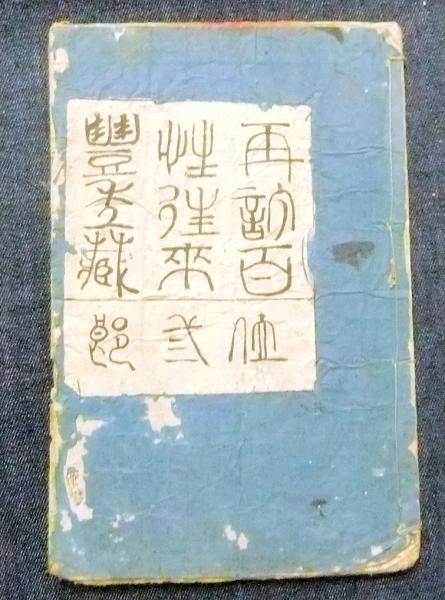 再訂百
姓往來
豐年藏